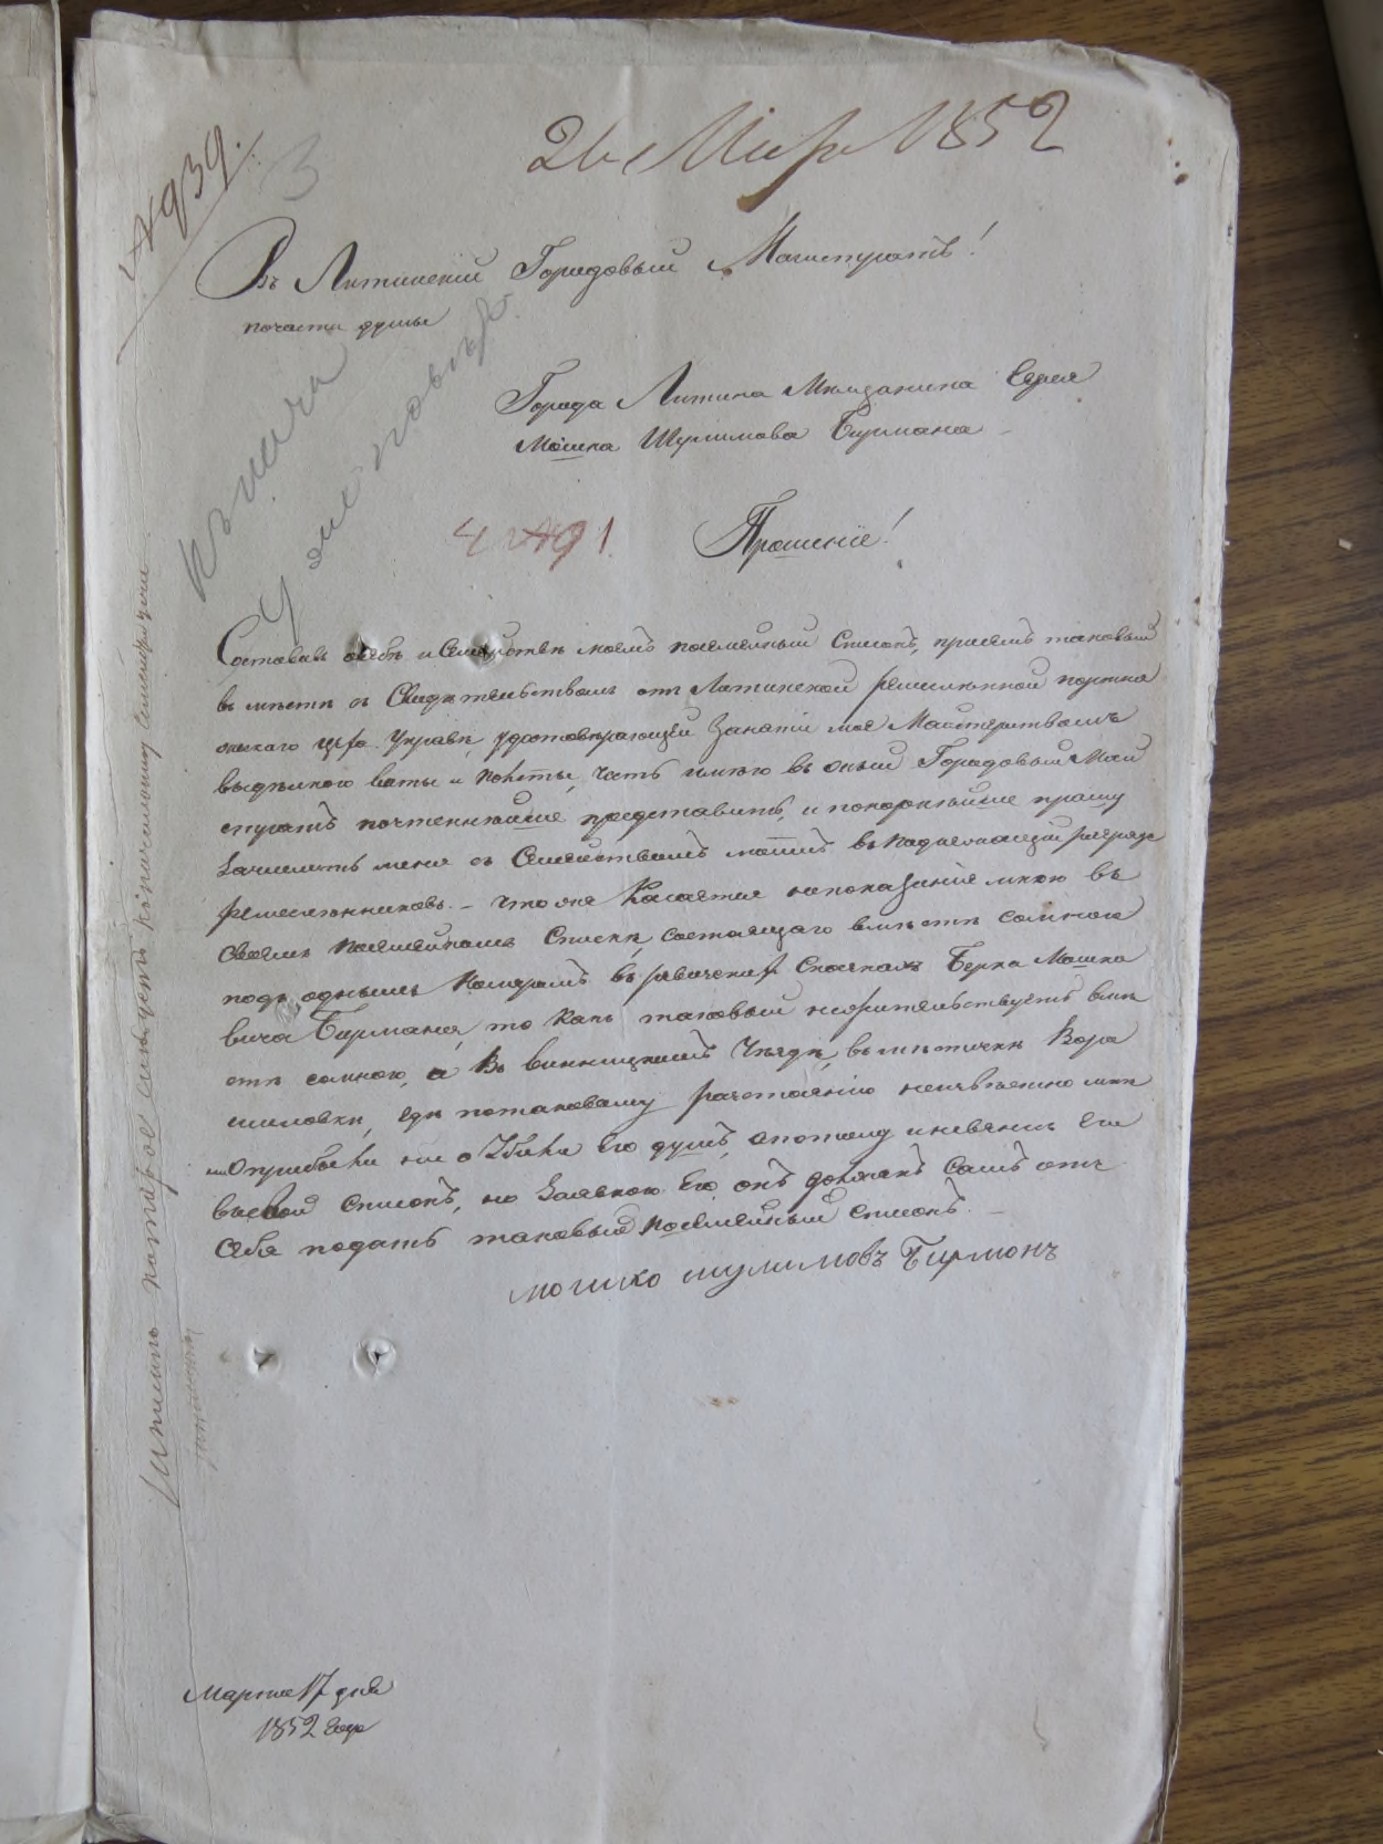 № 939.
26 Мар 1852
3
Въ Литинскій Городовый Магистратъ!
почасти думы
Города Литина Мѣщанина Еврея
Мошка Шулимова Бирмана
4 № 91.
Прошеніе!
Составивъ осебѣ и Семействѣ моемъ посемейный Списокъ, приемъ таковый
вмѣстѣ съ Свидѣтельствомъ отъ Литинской ремесленной портня
жскаго цеха Управы, удостовѣряющей Занятіе мое Майстерствомъ
выдѣлкою ваты и, честь имѣю въ оный Городовый Маги
стратъ почтеннѣйше представить, и покорнѣйше прошу
Зачислить меня съ Семействомъ моимъ въ подлежащій разрядъ
ремесленниковъ. – что же Касается непоказанія мною въ
своемъ посемейномъ Спискѣ, состоящаго вмѣстѣ сомною
подъ однымъ Номеромъ въ ревизскихъ Сказкахъ Берка Мошко
вича Бирмана, то какъ таковый нежительствуетъ вмѣ
стѣ сомною, а въ винницкомъ Уѣздѣ, въ мѣстечкѣ Воро
шиловки, гдѣ потаковому разстоянію неизвѣстно мнѣ
ни Оприбыли ни о Убыли Его душъ, апотому иневнесъ Его
въ свой Списокъ, но Заявкою Его онъ долженъ Самъ отъ
Себя подать таковый посемейный Списокъ. –
мошко шулимовъ Бирмонъ
Марта 17 дня
1852 года